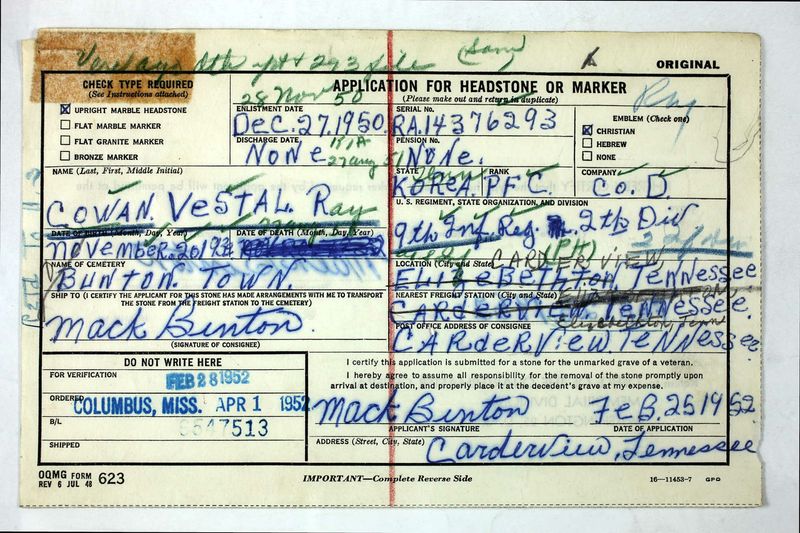 293 file
ORIGINAL
CHECK TYPE REQUIRED
(See Instructions attached)
☒ UPRIGHT MARBLE HEADSTONE
☐ FLAT MARBLE MARKER
☐ FLAT GRANITE MARKER
☐ BRONZE MARKER
APPLICATION FOR HEADSTONE OR MARKER
(Please make out and return in duplicate)
28 Nov 50
ENLISTMENT DATE
Dec. 27. 1950.
SERIAL No.
RA. 14376293
DISCHARGE DATE
None
KIA
PENSION No.
None.
EMBLEM (Check one)
☒ CHRISTIAN
☐ HEBREW
☐ NONE
Ray
NAME (Last, First, Middle Initial)
COWAN. VeSTAL. Ray
STATE
RANK
KOReA. PFC.
COMPANY
Co. D.
U. S. REGIMENT, STATE ORGANIZATION, AND DIVISION
9th Inf. Reg. 2th Div
DATE OF BIRTH (Month, Day, Year)
DATE OF DEATH (Month, Day, Year)
November. 20 193
(PH)
NAME OF CEMETERY
BUNTON. TOWN.
LOCATION (City and State)
CARDER VIEW
ELIZEBeThTON, TenneSSee
SHIP TO (I CERTIFY THE APPLICANT FOR THIS STONE HAS MADE ARRANGEMENTS WITH ME TO TRANSPORT
THE STONE FROM THE FREIGHT STATION TO THE CEMETERY)
Mack Bunton.
(SIGNATURE OF CONSIGNEE)
NEAREST FREIGHT STATION (City and State)
CARDERVIEW. TENNeSSee.
Elizabethton, Tenn
POST OFFICE ADDRESS OF CONSIGNEE
CARderVieW TeNNeSSee
DO NOT WRITE HERE
FOR VERIFICATION
FEB 28 1952
ORDERED
COLUMBUS, MISS. APR 1 1952
B/L
6547513
SHIPPED
I certify this application is submitted for a stone for the unmarked grave of a veteran.
I hereby agree to assume all responsibility for the removal of the stone promptly upon
arrival at destination, and properly place it at the decedent's grave at my expense.
Mack Bunton FeB. 25 1952
APPLICANT'S SIGNATURE
DATE OF APPLICATION
ADDRESS (Street, City, State)
Carderview, Tennessee
OQMG FORM
REV 6 JUL 48 623
IMPORTANT—Complete Reverse Side
16—11453-7 GPO